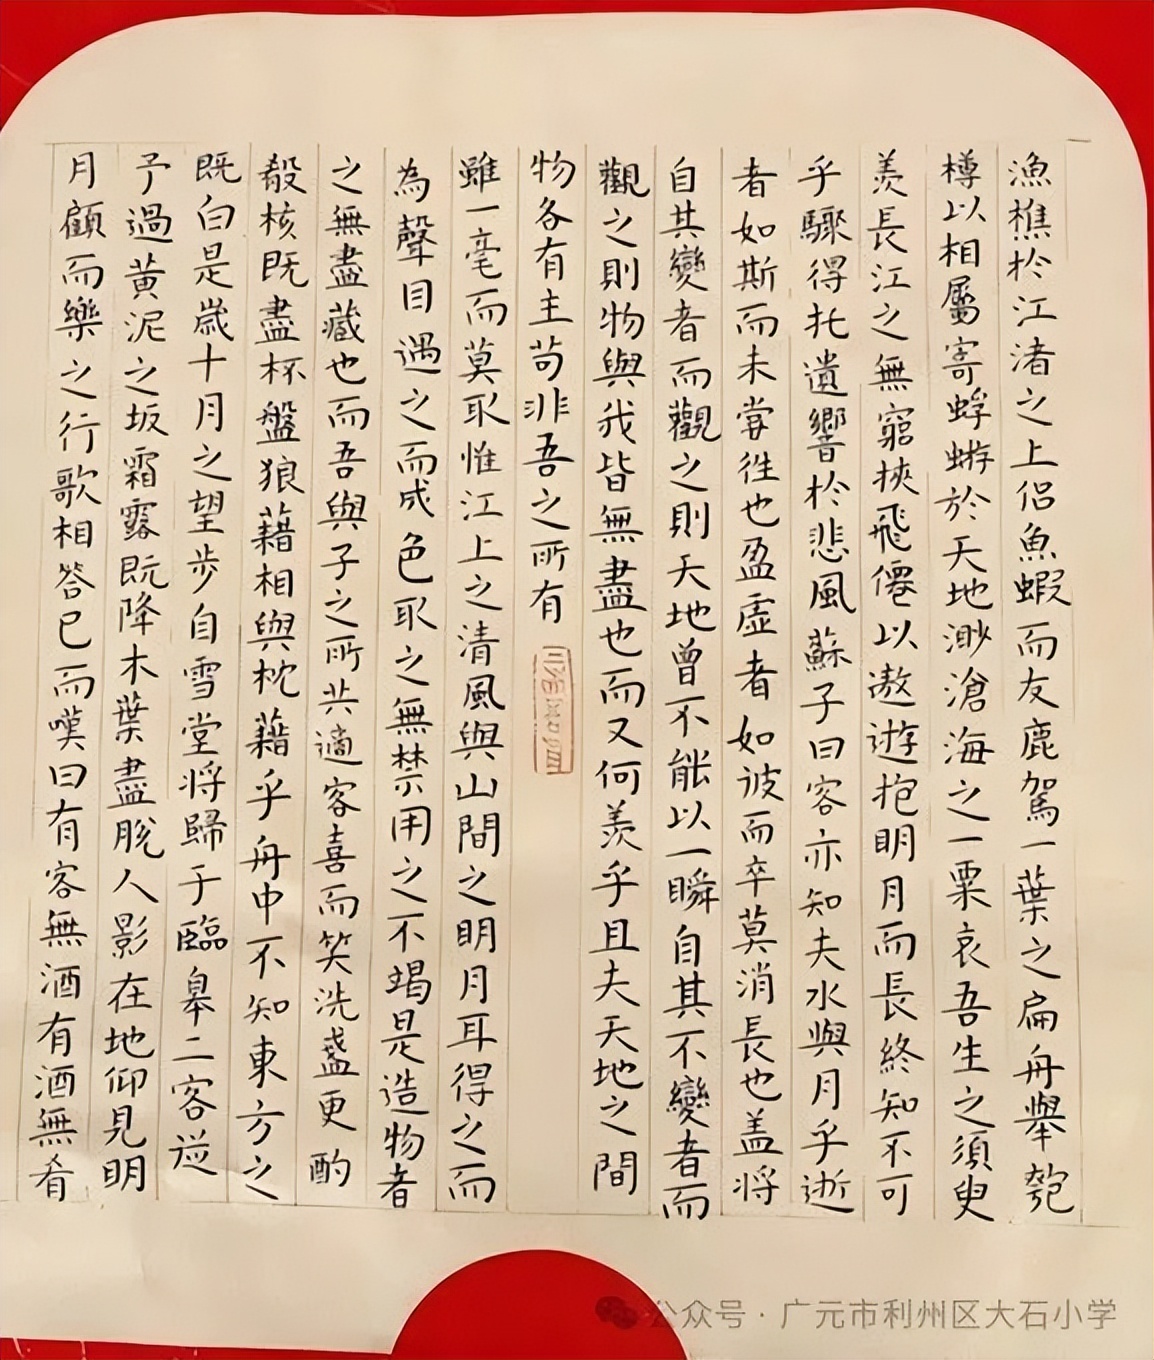 漁樵於江渚之上侶魚蝦而友鹿駕一葉之扁舟舉匏
樽以相屬寄蜉蝣於天地渺滄海之一粟哀吾生之須臾
羨長江之無窮挾飛僊以遨遊抱明月而長終知不可
乎驟得托遺響於悲風蘇子曰客亦知夫水與月乎逝
者如斯而未嘗往也盈虛者如彼而卒莫消長也盖將
自其變者而觀之則天地曾不能以一瞬自其不變者而
觀之則物與我皆無盡也而又何羨乎且夫天地之間
物各有主苟非吾之所有
雖一毫而莫取惟江上之清風與山間之明月耳得之而
為聲目遇之而成色取之無禁用之不竭是造物者
之無盡藏也而吾與子之所共適客喜而笑洗盞更酌
殽核既盡杯盤狼藉相與枕藉乎舟中不知東方之
既白是歲十月之望步自雪堂將歸于臨皋二客從
予過黃泥之坂霜露既降木葉盡脫人影在地仰見明
月顧而樂之行歌相答已而嘆曰有客無酒有酒無肴
公众号·广元市利州区大石小学